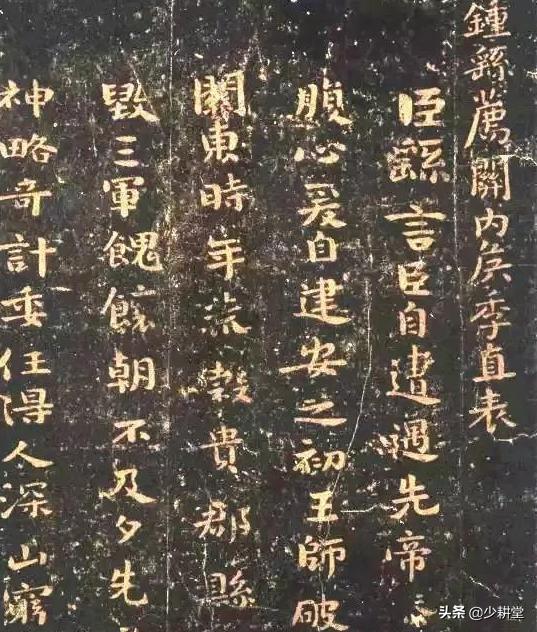 鍾繇薦關內侯季直表
臣繇言臣自遭遇先帝
腹心爰自建安之初王師破
關東時年荒穀貴郡縣
毀三軍餽饟朝不及夕先
神略奇計委任得人深山窮
头条 @少耕堂